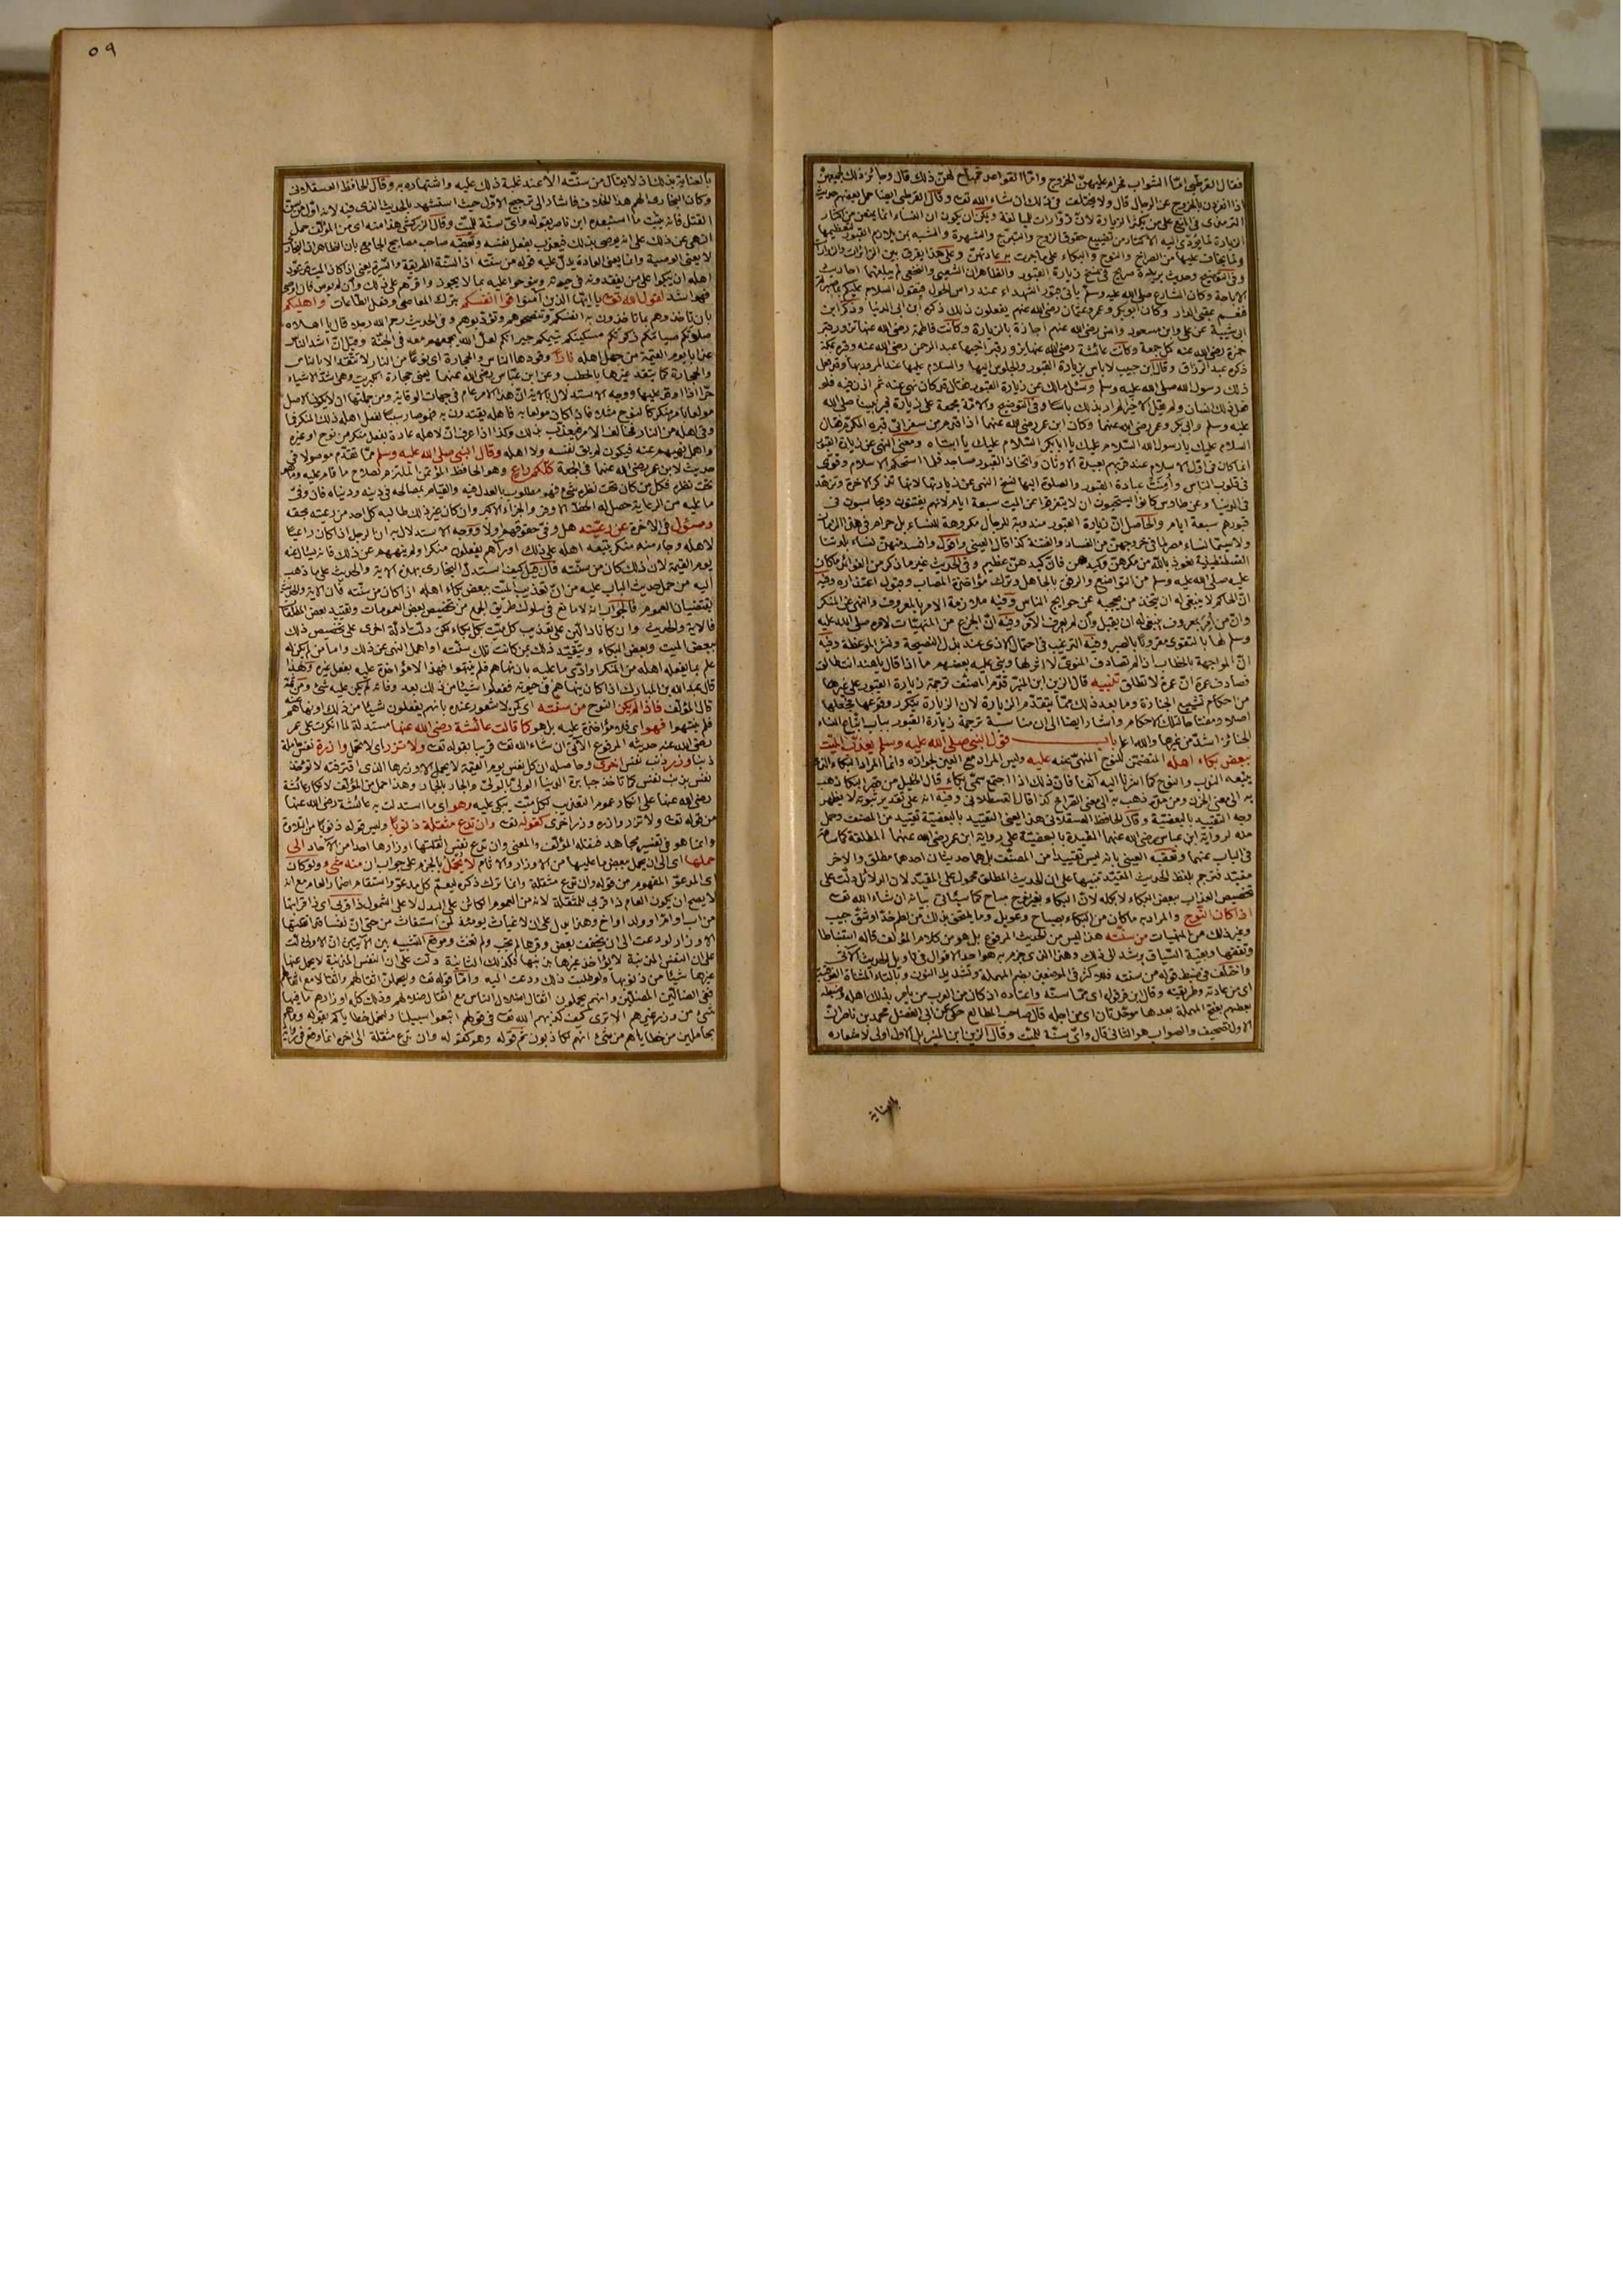 فقال القرطبي امّا الشواب فحرام عليهنّ الخروج وامّا القواعد فمباح لهنّ ذلك قال وجائز ذلك لجميعهنّ
اذا انفردن بالخروج عن الرجال قال ولا يختلف في ذلك ان شاء الله تعـ وقال القرطبي ايضا حمل بعضهم حديث
الترمذى في المنع على من يكثر الزيارة لانّ زوّارات للمبالغة ويمكن ان يكون ان النساء انما يمنعن من اكثار
الزيارة لما يؤدّى اليه الاكثار من تضييع حقوق الزوج والتبرّج والشهرة والتشبه بمن يلازم القبور لتعظيمها
ولما يخاف عليها من الصراخ والنوح والبكاء على ما جرت به عادتهنّ وعلى هذا يفرق بين الزائرات والزوارات
وفي التوضيح وحديث بريدة صريح في نسخ زيارة القبور والظاهر ان الشعبى والنخعى لم يبلغهما احاديث
الاباحة وكان الشارع صلى الله عليه وسلم يأتى قبور الشهداء عند راس الحول فيقول السلام عليكم بما صبرتم
فنعم عقبى الدار وكان ابوبكر وعمر وعثمان رضى الله عنهم يفعلون ذلك ذكره ابن ابى الدنيا وذكر ابن
ابى شيبة عن على وابن مسعود وانس رضى الله عنهم اجازة بالزيارة وكانت فاطمة رضى الله عنها تزور قبر
حمزة رضى الله عنه كل جمعة وكانت عائشة رضى الله عنها تزور قبر اخيها عبد الرحمن رضى الله عنه وقبره بمكة
ذكره عبد الرزاق وقال ابن حبيب لا باس بزيارة القبور والجلوس اليها والسلام عليها عند المرور بها وقد فعل
ذلك رسول الله صلى الله عليه وسلم وسئل مالك عن زيارة القبور فقال قد كان نهى عنه ثم اذن فيه فلو
فعل ذلك انسان ولم يقل الا خيرا لم ار بذلك باسا وفي التوضيح والامّة مجمعة على زيارة قبر نبينا صلى الله
عليه وسلم وابى بكر وعمر رضى الله عنهما وكان ابن عمر رضى الله عنهما اذا قدم من سفر اتى قبره المكرّم فقال
السلام عليك يا رسول الله السّلام عليك يا ابابكر السّلام عليك يا ابتاه ومعنى النهى عن زيارة القبور
انما كان في اوّل الاسلام عند قربهم لعبدة الاوثان واتخاذ القبور مساجد فلما استحكم الاسلام وقوى
في قلوب الناس وأمِنت عبادة القبور والصلوة اليها نسخ النهى عن زيارتها لانها تذكر الاخرة وتزهد
في الدنيا وعن طاوس كانوا يستحبون ان لا يتفرقوا عن الميت سبعة ايام لانهم يفتنون ويحاسبون في
قبورهم سبعة ايام والحاصل انّ زيارة القبور مندوبة للرجال مكروهة للنساء بل حرام في هذا الزمان
ولا سيما نساء مصر لما في خروجهنّ من الفساد والفتنة كذا قال العينى واقول وافسد منهنّ نساء بلدتنا
القسطنطينية نعوذ بالله من مكرهنّ وكيدهنّ فانّ كيدهنّ عظيم وفي الحديث غير ما ذكر من الفوائد ما كان
عليه صلى الله عليه وسلم من التواضع والرفق بالجاهل وترك مؤاخذة المصاب وقبول اعتذاره وفيه
انّ الحاكم لا ينبغى له ان يتخذ من يحجبه عن حوايج الناس وفيه ملازمة الامر بالمعروف والنهى عن المنكر
وانّ من أمر بمعروف ينبغى له ان يقبل وان لم يعرف الآمر وفيه انّ الجزع من المنهيّات لامره صلى الله عليه
وسلم لها بالتقوى مقرونا بالصبر وفيه الترغيب في احتمال الاذى عند بذل النصيحة ونشر الموعظة وفيه
انّ المواجهة بالخطاب اذا لم تصادف المنوىّ لا اثر لها وبنى عليه بعضهم ما اذا قال يا هند انت طالق
فصادف عمرة انّ عمرة لا تطلق تنبيه قال الزين ابن المنيّر قدّم المصنّف ترجمة زيارة القبور على غيرها
من احكام تشييع الجنازة وما بعد ذلك ممّا يتقدّم الزيارة لان الزيارة يتكرر وقوعها فجعلها
اصلا ومفتاحا لتلك الاحكام واشار ايضا الى ان مناسبة ترجمة زيارة القبور بباب اتباع النساء
الجنائز اشدّ من غيرها والله اعلم باب قول النبى صلى الله عليه وسلم يعذّب الميت
ببعض بكاء اهله المتضمّن للنوح المنهىّ عنه عليه وليس المراد دمع العين لجوازه وانما المراد البكاء الذى
يتبعه الندب والنوح كما اشرنا اليه آنفا فانّ ذلك اذا اجتمع سمّى بكاء قال الخليل من قصر البكا ذهب
به الى معنى الحزن ومن مدّه ذهب به الى معنى الصراخ كذا قال القسطلانى وفيه انه على تقدير ثبوته لا يظهر
وجه التقييد بالبعضيّة وقال الحافظ العسقلانى هذا يعنى التقييد بالبعضيّة تقييد من المصنف وحمل
منه لرواية ابن عباس رضى الله عنهما المقيدة بالبعضيّة على رواية ابن عمر رضى الله عنهما المطلقة كما ساقه
في الباب عنهما وتعقبه العينى بانه ليس تقييدا من المصنّف بل هما حديثان احدهما مطلق والاخر
مقيّد فترجم بلفظ الحديث المقيّد تنبيها على ان الحديث المطلق محمول على المقيّد لان الدلائل دلّت على
تخصيص العذاب ببعض البكاء لا بكله لانّ البكاء بغير نوح مباح كما سيأتى بيانه ان شاء الله تعـ
اذا كان النّوح والمراد به ما كان من البكاء بصياح وعويل وما يلتحق بذلك من لطم خدّ او شقّ جيب
وغير ذلك من المنهيات من سنّته هذا ليس من الحديث المرفوع بل هو من كلام المؤلف قاله استنباطا
وتفقها وبقية السّياق يرشد الى ذلك وهذا الذى جزم به هو احد الاقوال في تاويل الحديث الآتى
واختلف في ضبط قوله من سنته فللاكثر في الموضعين بضم المهملة وتشديد النون وبالتاء المثناة الفوقية
اى من عادته وطريقته وقال ابن قرقول اى ممّا سنّه واعتاده اذ كان من العرب من يامر بذلك اهله وضبطه
بعضهم بفتح المهملة بعدها موحّدتان اى من اجله قال صاحب المطالع حكى عن ابى الفضل محمد بن ناصر انّ
الاول تصحيف والصواب هو الثانى قال واىّ سنّة للميّت وقال الزين ابن المنيّر بل الاول اولى لاشعاره
بالعناية
٥٩
بالعناية بذلك اذ لا يقال من سنّته الا عند غلبة ذلك عليه واشتهاره به وقال الحافظ العسقلانى
وكانّ البخارى الهم هذا الخلاف فاشار الى ترجيح الاوّل حيث استشهد بالحديث الذى فيه لانه اوّل من سنّ
القتل فانه يثبت ما استبعده ابن ناصر بقوله واىّ سنّة للميّت وقال الزركشى هذا منه اى من المؤلّف حمل
النهى عن ذلك على انه يوصى بذلك فيعذب بفعل نفسه وتعقبه صاحب مصابيح الجامع بان الظاهر ان البخارى
لا يعنى الوصية وانما يعنى العادة يدلّ عليه قوله من سنّته اذ السّنّة الطريقة والسّيرة يعنى اذا كان الميت قد عوّد
اهله ان يبكوا على من يفقدونه في حيوته وينوحوا عليه بما لا يجوز واقرّهم على ذلك وان لم يوص فان اوصى
فهو اشد لقول الله تعـ يا ايّها الذين آمنوا قوا انفسكم بترك المعاصى وفعل الطاعات واهليكم
بان تاخذوهم بما تاخذون به انفسكم وتنصحوهم وتؤدّبوهم وفي الحديث رحم الله رجلا قال يا اهلاه
صلوتكم صيامكم زكوتكم مسكينكم يتيمكم جيرانكم لعلّ الله يجمعهم معه في الجنّة وقيل انّ اشد الناس
عذابا يوم القيمة من جهل اهله نارًا وقودها الناس والحجارة اى نوعًا من النار لا تتّقد الا بالناس
والحجارة كما يتقد غيرها بالحطب وعن ابن عبّاس رضى الله عنهما يعنى حجارة الكبريت وهى اشدّ الاشياء
حرّا اذا اوقد عليها ووجه الاستدلال بالاية انّ هذا الامر عام في جهات الوقاية ومن جملتها ان لا يكون الاصل
مولعا بامر منكر كالنوح مثلا فاذا كان مولعا به فاهله يقتدون به فهو صار سببا لفعل اهله ذلك المنكر فما
وقى اهله من النار فخالف الامر فيعذّب بذلك وكذا اذا عرف انّ لاهله عادة بفعل منكر من نوح او غيره
واهمل نهيهم عنه فيكون لم يق نفسه ولا اهله وقال النبى صلى الله عليه وسلم ممّا تقدّم موصولا في
حديث لابن عمر رضى الله عنهما في الجمعة كلّكم راع وهو الحافظ المؤتمن الملتزم لصلاح ما قام عليه وما هو
تحت نظره فكلّ من كان تحت نظره شىء فهو مطلوب بالعدل فيه والقيام بمصالحه في دينه ودنياه فان وفّى
ما عليه من الرعاية حصل له الحظّ الاوفر والجزاء الاكبر وان كان غير ذلك طالبه كل احد من رعيّته بحقه
ومسئول في الاخرة عن رعيّته هل وفّى حقوقهم او لا ووجه الاستدلال به ان الرجل اذا كان راعيًا
لاهله وجاء منه منكر يتبعه اهله على ذلك او رآهم يفعلون منكرا ولم ينههم عن ذلك فانه يسأل عنه
يوم القيمة لان ذلك كان من سنّته فان قيل كيف استدلّ البخارى بهذه الاية والحديث على ما ذهب
اليه من حمل حديث الباب عليه من انّ تعذيب الميّت ببعض بكاء اهله اذا كان من سنّته فان الاية والحديث
يقتضيان العموم فالجواب انه لا مانع في سلوك طريق الجمع من تخصيص بعض العمومات وتقييد بعض المطلقات
فالاية والحديث وان كانا دالّين على تعذيب كلّ ميّت بكلّ بكاء لكن دلّت ادلّة اخرى على تخصيص ذلك
ببعض الميت وبعض البكاء وبتقييد ذلك بمن كانت تلك سنّته او اهمل النهى عن ذلك واما من لم يكن له
علم بما يفعله اهله من المنكر او ادّى ما عليه بان نهاهم فلم ينتهوا فهذا لا مؤاخذة عليه بفعل غيره ولهذا
قال عبد الله بن المبارك اذا كان ينهاهم في حيوته ففعلوا شيئا من ذلك بعد وفاته لم يكن عليه شىء ومن ثمّة
قال المؤلّف فاذا لم يكن النوح من سنّته اى كمن لا شعور عنده بانهم يفعلون شيئا من ذلك او نهاهم
فلم ينتهوا فهو اى فلا مؤاخذة عليه بل هو كما قالت عائشة رضى الله عنها مستدلة لما انكرت على عمر
رضى الله عنه حديثه المرفوع الآتى ان شاء الله تعـ قريبا بقوله تعـ ولا تزر اى لا تحمل وازرة نفس حاملة
ذنبا وزر ذنب نفس اخرى وحاصله ان كل نفس يوم القيمة لا يحمل الا وزرها الذى اقترفته لا تؤخذ
نفس بذنب نفس كما تاخذ جبابرة الدنيا الولىّ بالولىّ والجار بالجار وهذا حمل من المؤلّف لانكار عائشة
رضى الله عنها على انكار عموم التعذيب لكل ميّت يبكى عليه وهو اى ما استدلت به عائشة رضى الله عنها
من قوله تعـ ولا تزر وازرة وزر اخرى كقوله تعـ وان تدع مثقلة ذنوبًا وليس قوله ذنوبًا من التلاوة
وانما هو في تفسير مجاهد فنقله المؤلّف والمعنى وان تدع نفس اثقلتها اوزارها احدا من الآحاد الى
حملها اى الى ان يحمل بعض ما عليها من الاوزار والاثام لا يحمل بالجزم على جواب ان منه شىء ولو كان
اى المدعوّ المفهوم من قوله وان تدع مثقلة وانما ترك ذكره ليعمّ كل مدعوّ واستقام اضمار العام مع انه
لا يصح ان يكون العام ذا قربى للمثقلة لانه من العموم الكائن على البدل لا على الشمول ذا قربى اى ذا قرابتها
من اب او امّ او ولد او اخ وهذا يدل على ان لا غياث يومئذ لمن استغاث من حتى انّ نفسا قد اثقلتها
الاوزار لو دعت الى ان يخفف بعض وقرها لم تجب ولم تغث وموضع التشبيه بين الآيتين انّ الاولى دلت
على ان النفس المذنبة لا يؤاخذ غيرها بذنبها فكذلك الثانية دلّت على ان النفس المذنبة لا يحمل عنها
غيرها شيئا من ذنوبها ولو طلبت ذلك ودعت اليه وامّا قوله تعـ وليحملنّ اثقالهم واثقالا مع اثقالهم
ففى الضالّين المضلّين وانهم يحملون اثقال اضلال الناس مع اثقال ضلالهم وذلك كله اوزارهم ما فيها
شىء من وزر غيرهم الا ترى كيف كذبهم الله تعـ في قولهم اتبعوا سبيلنا ولنحمل خطاياكم بقوله وما هم
بحاملين من خطاياهم من شىء انهم لكاذبون ثم قوله وهو كقوله وان تدع مثقلة الى اخره انما وقع في رواية